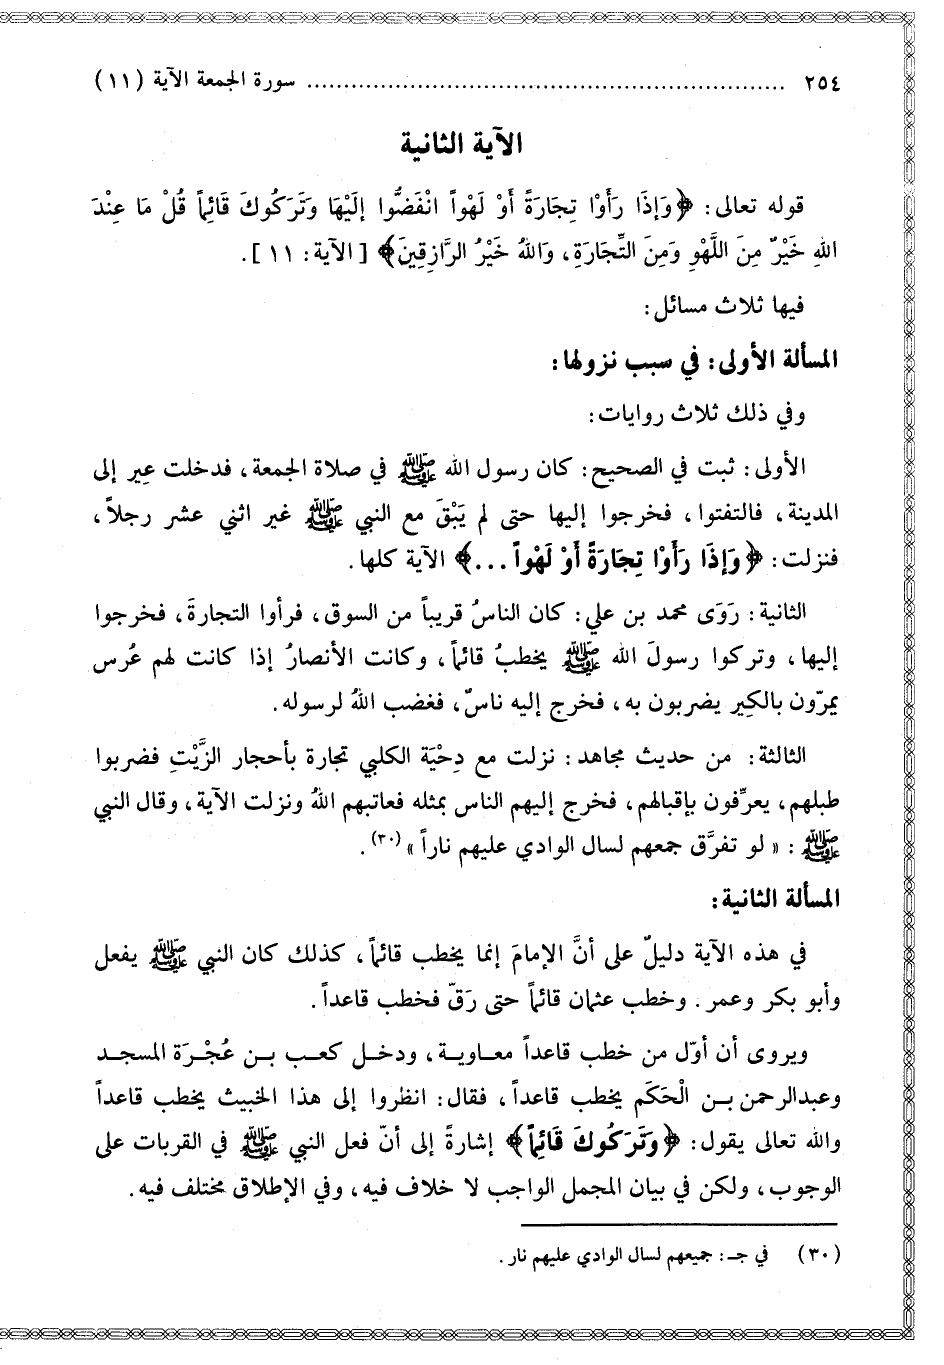 ٢٥٤ ................................................................ سورة الجمعة الآية (١١)
الآية الثانية
قوله تعالى: ﴿وَإِذَا رَأَوْا تِجَارَةً أَوْ لَهْواً انْفَضُّوا إِلَيْهَا وَتَرَكُوكَ قَائِماً قُلْ مَا عِنْدَ
اللهِ خَيْرٌ مِنَ اللَّهْوِ وَمِنَ التِّجَارَةِ، وَاللهُ خَيْرُ الرَّازِقِينَ﴾ [الآية: ١١].
فيها ثلاث مسائل:
المسألة الأولى: في سبب نزولها:
وفي ذلك ثلاث روايات:
الأولى: ثبت في الصحيح: كان رسول الله ﷺ في صلاة الجمعة، فدخلت عِير إلى
المدينة، فالتفتوا، فخرجوا إليها حتى لم يَبْقَ مع النبي ﷺ غير اثني عشر رجلاً،
فنزلت: ﴿وَإِذَا رَأَوْا تِجَارَةً أَوْ لَهْواً ...﴾ الآية كلها.
الثانية: رَوَى محمد بن علي: كان الناسُ قريباً من السوق، فرأوا التجارةَ، فخرجوا
إليها، وتركوا رسولَ الله ﷺ يخطبُ قائماً، وكانت الأنصارُ إذا كانت لهم عُرس
يمرّون بالكِير يضربون به، فخرج إليه ناسٌ، فغضب اللهُ لرسوله.
الثالثة: من حديث مجاهد: نزلت مع دِحْيَة الكلبي تجارة بأحجار الزَّيْتِ فضربوا
طبلهم، يعرِّفون بإقبالهم، فخرج إليهم الناس بمثله فعاتبهم اللهُ ونزلت الآية، وقال النبي
ﷺ: «لو تفرَّق جمعهم لسال الوادي عليهم ناراً»(٣٠).
المسألة الثانية:
في هذه الآية دليلٌ على أنَّ الإمامَ إنما يخطب قائماً، كذلك كان النبي ﷺ يفعل
وأبو بكر وعمر. وخطب عثمان قائماً حتى رَقّ فخطب قاعداً.
ويروى أن أوّل من خطب قاعداً معاوية، ودخل كعب بن عُجْرَة المسجد
وعبدالرحمن بن الْحَكَم يخطب قاعداً، فقال: انظروا إلى هذا الخبيث يخطب قاعداً
والله تعالى يقول: ﴿وَتَرَكُوكَ قَائِماً﴾ إشارةً إلى أنّ فعل النبي ﷺ في القربات على
الوجوب، ولكن في بيان المجمل الواجب لا خلاف فيه، وفي الإطلاق مختلف فيه.
(٣٠) في جـ: جميعهم لسال الوادي عليهم نار.